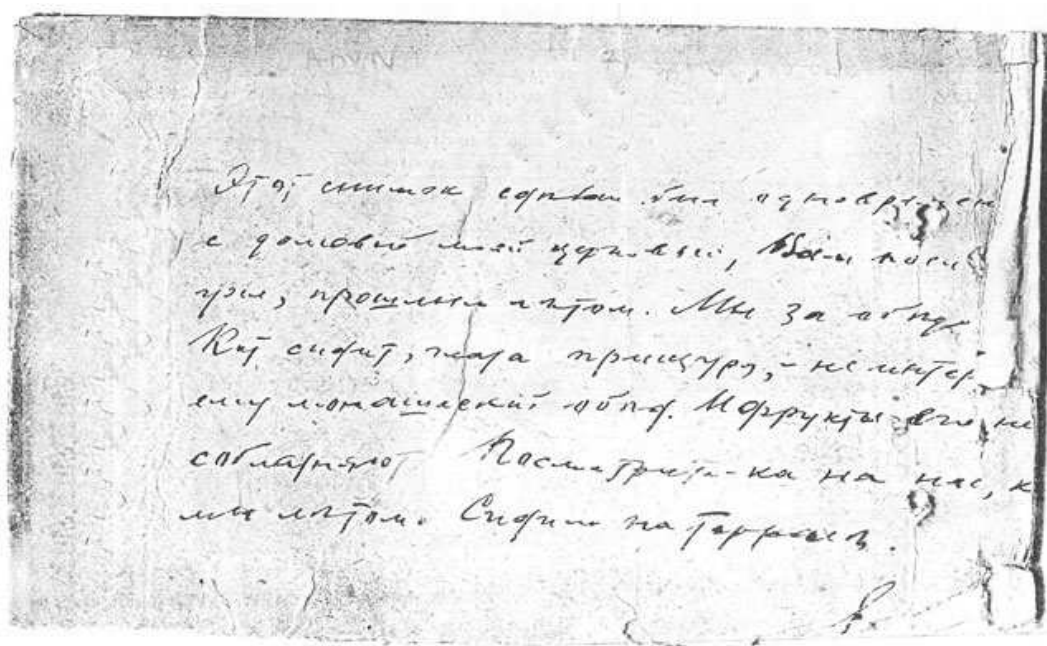 Этот снимок сдѣлан был одноврѣмен
с домовой моей церковью, Вам посл
ура, прошлым лѣтом. Мы за обѣдо
Кот сидит, глаза прищуря, – не интер.
ему монашеский обѣд. И фрукты его не
соблазняют Посмотрите-ка на нас, к
мы лѣтом. Сидим на террасѣ.